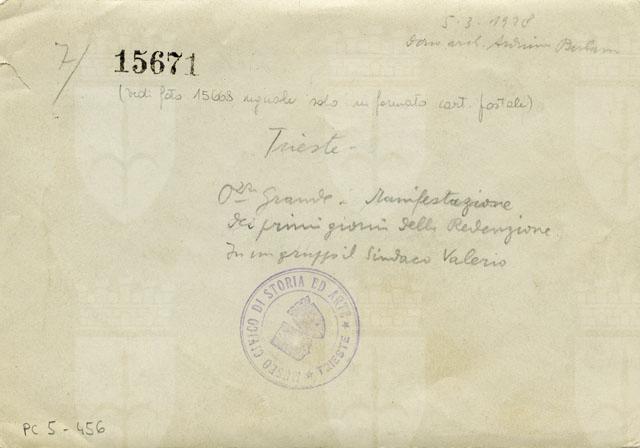 5·3·1928
dono arch.
7/
15671
(vedi foto 15668 uguale solo in formato cart. postale)
Trieste -
P.zza Grande. Manifestazione
dei primi giorni della Redenzione.
In un gruppo il Sindaco Valerio
MUSEO CIVICO DI STORIA ED ARTE ★ TRIESTE ★
PC 5 - 456